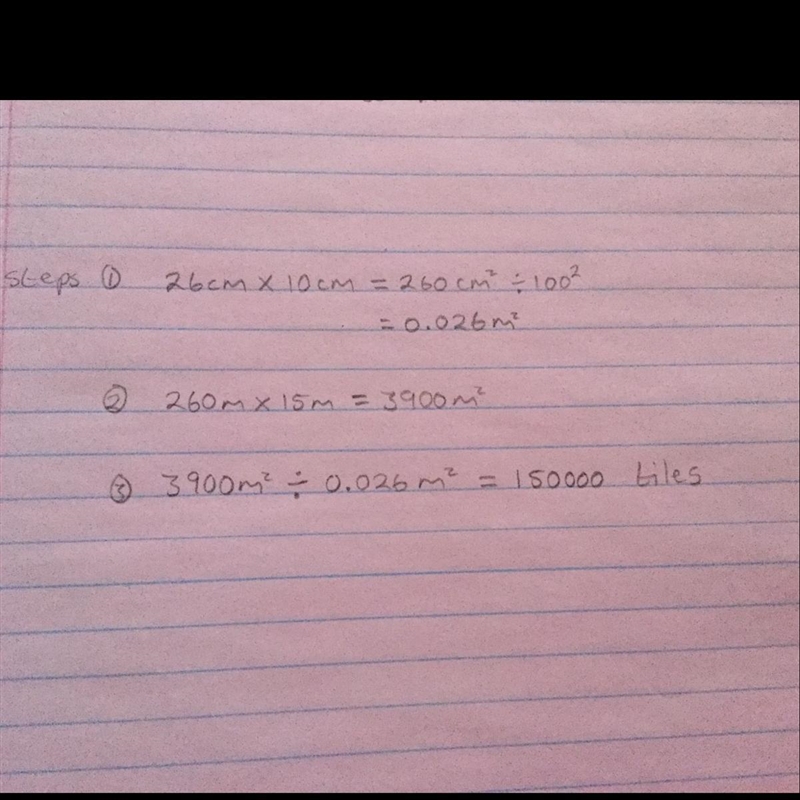 steps ① 26cm × 10cm = 260cm² ÷ 100²
= 0.026m²
② 260m × 15m = 3900m²
③ 3900m² ÷ 0.026m² = 150000 tiles